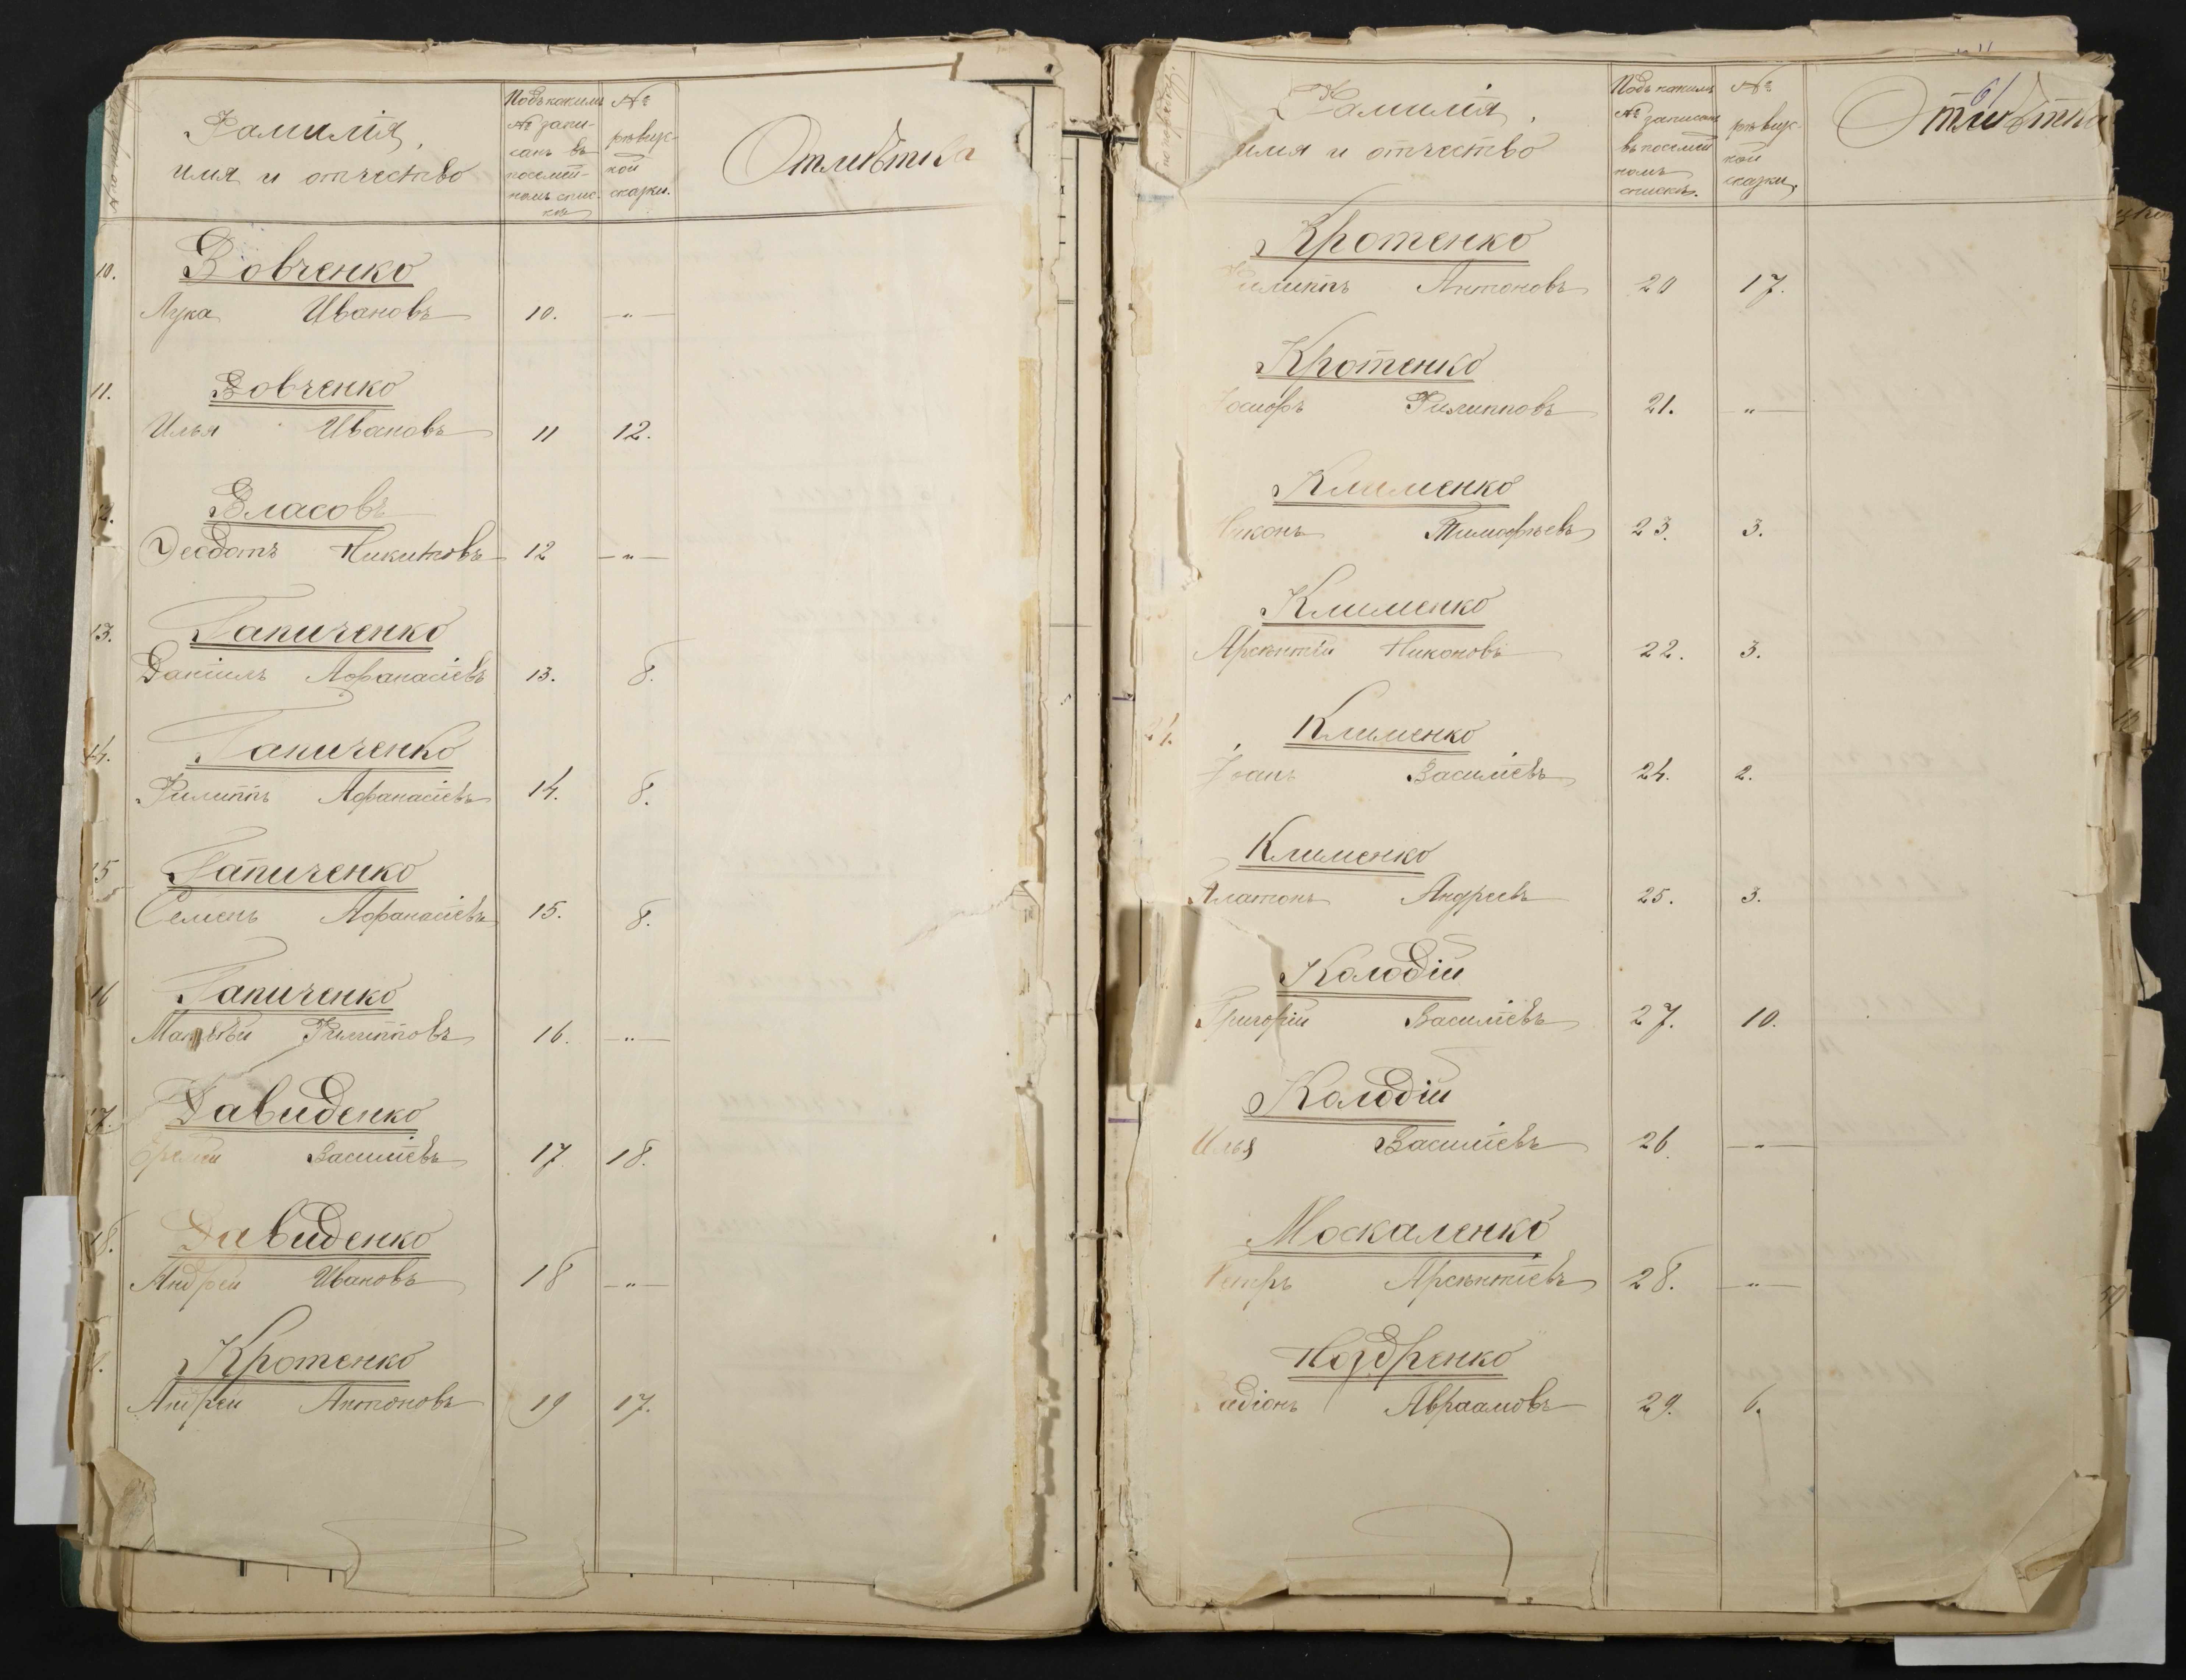 Фамилія,
имя и отчество
Подъ какимъ № записанъ въ посемейномъ спискѣ
№ ревизской сказки.
Отмѣтка
10.
Вовченко
Лука Ивановъ 10. — " —
11.
Вовченко
Илья Ивановъ 11 12.
12.
Власовъ
Деодотъ Никитовъ 12 — " —
13.
Гапиченко
Даніилъ Афанасіевъ 13. 8.
14.
Гапиченко
Филиппъ Афанасіевъ 14. 8.
15
Гапиченко
Семенъ Афанасіевъ 15. 8.
16
Гапиченко
Матвѣй Филипповъ 16. — " —
17.
Давиденко
Еремій Василіевъ 17 18.
18.
Давиденко
Андрей Ивановъ 18 — " —
Кротенко
Андрей Антоновъ 19 17.
61
Фамилія,
имя и отчество
Подъ какимъ № записанъ въ посемейномъ спискѣ.
№ ревизской сказки.
Отмѣтка
Кротенко
Филиппъ Антоновъ 20 17.
Кротенко
Іосифъ Филипповъ 21. — " —
Клименко
Никонъ Тимофѣевъ 23. 3.
Клименко
Арсентій Никоновъ 22. 3.
24.
Клименко
Іоанъ Василіевъ 24. 2.
Клименко
Платонъ Андреевъ 25. 3.
Колодій
Григорій Василіевъ 27. 10.
Колодій
Илья Василіевъ 26. — " —
Москаленко
Петръ Арсентіевъ 28. — " —
Нодренко
адіонъ Авраамовъ 29. 6.